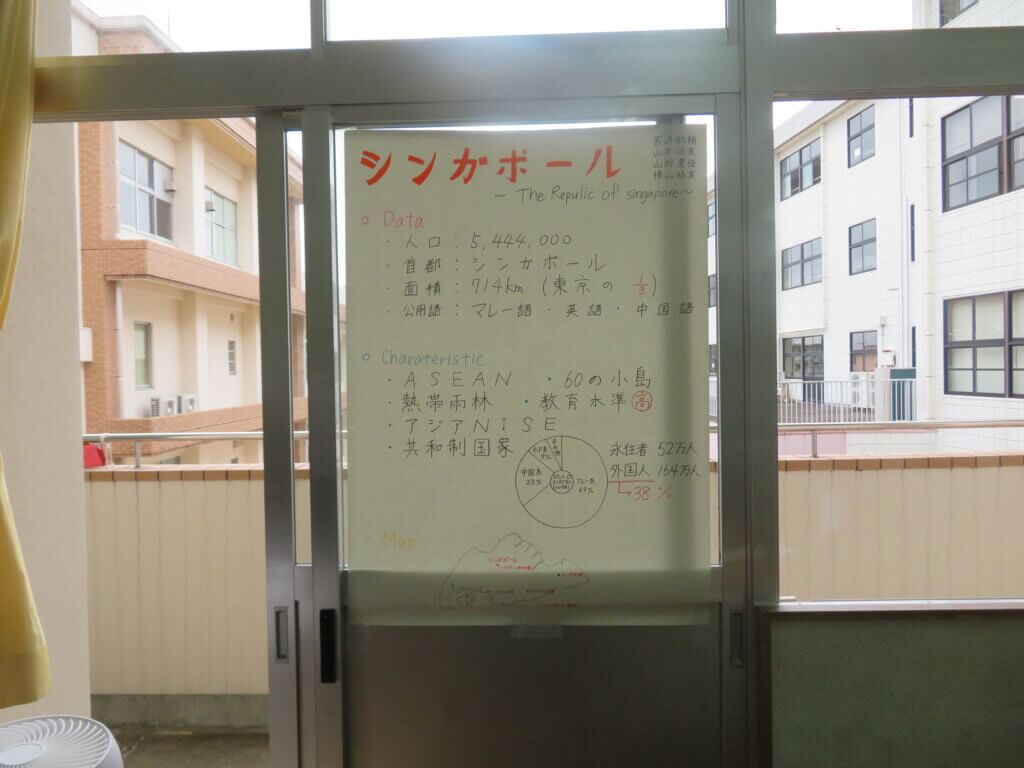 シンガポール
～ The Repulic of singapore～
Data
・人口：5,444,000
・首都：シンガポール
・面積：714km (東京の 1/3)
・公用語：マレー語・英語・中国語
Charateristic
・ASEAN ・60の小島
・熱帯雨林 ・教育水準高
・アジアNISE
・共和制国家
その他
中国系
23%
マレー系
永住者 52万人
外国人 164万人
→38%
Map
シンガポール